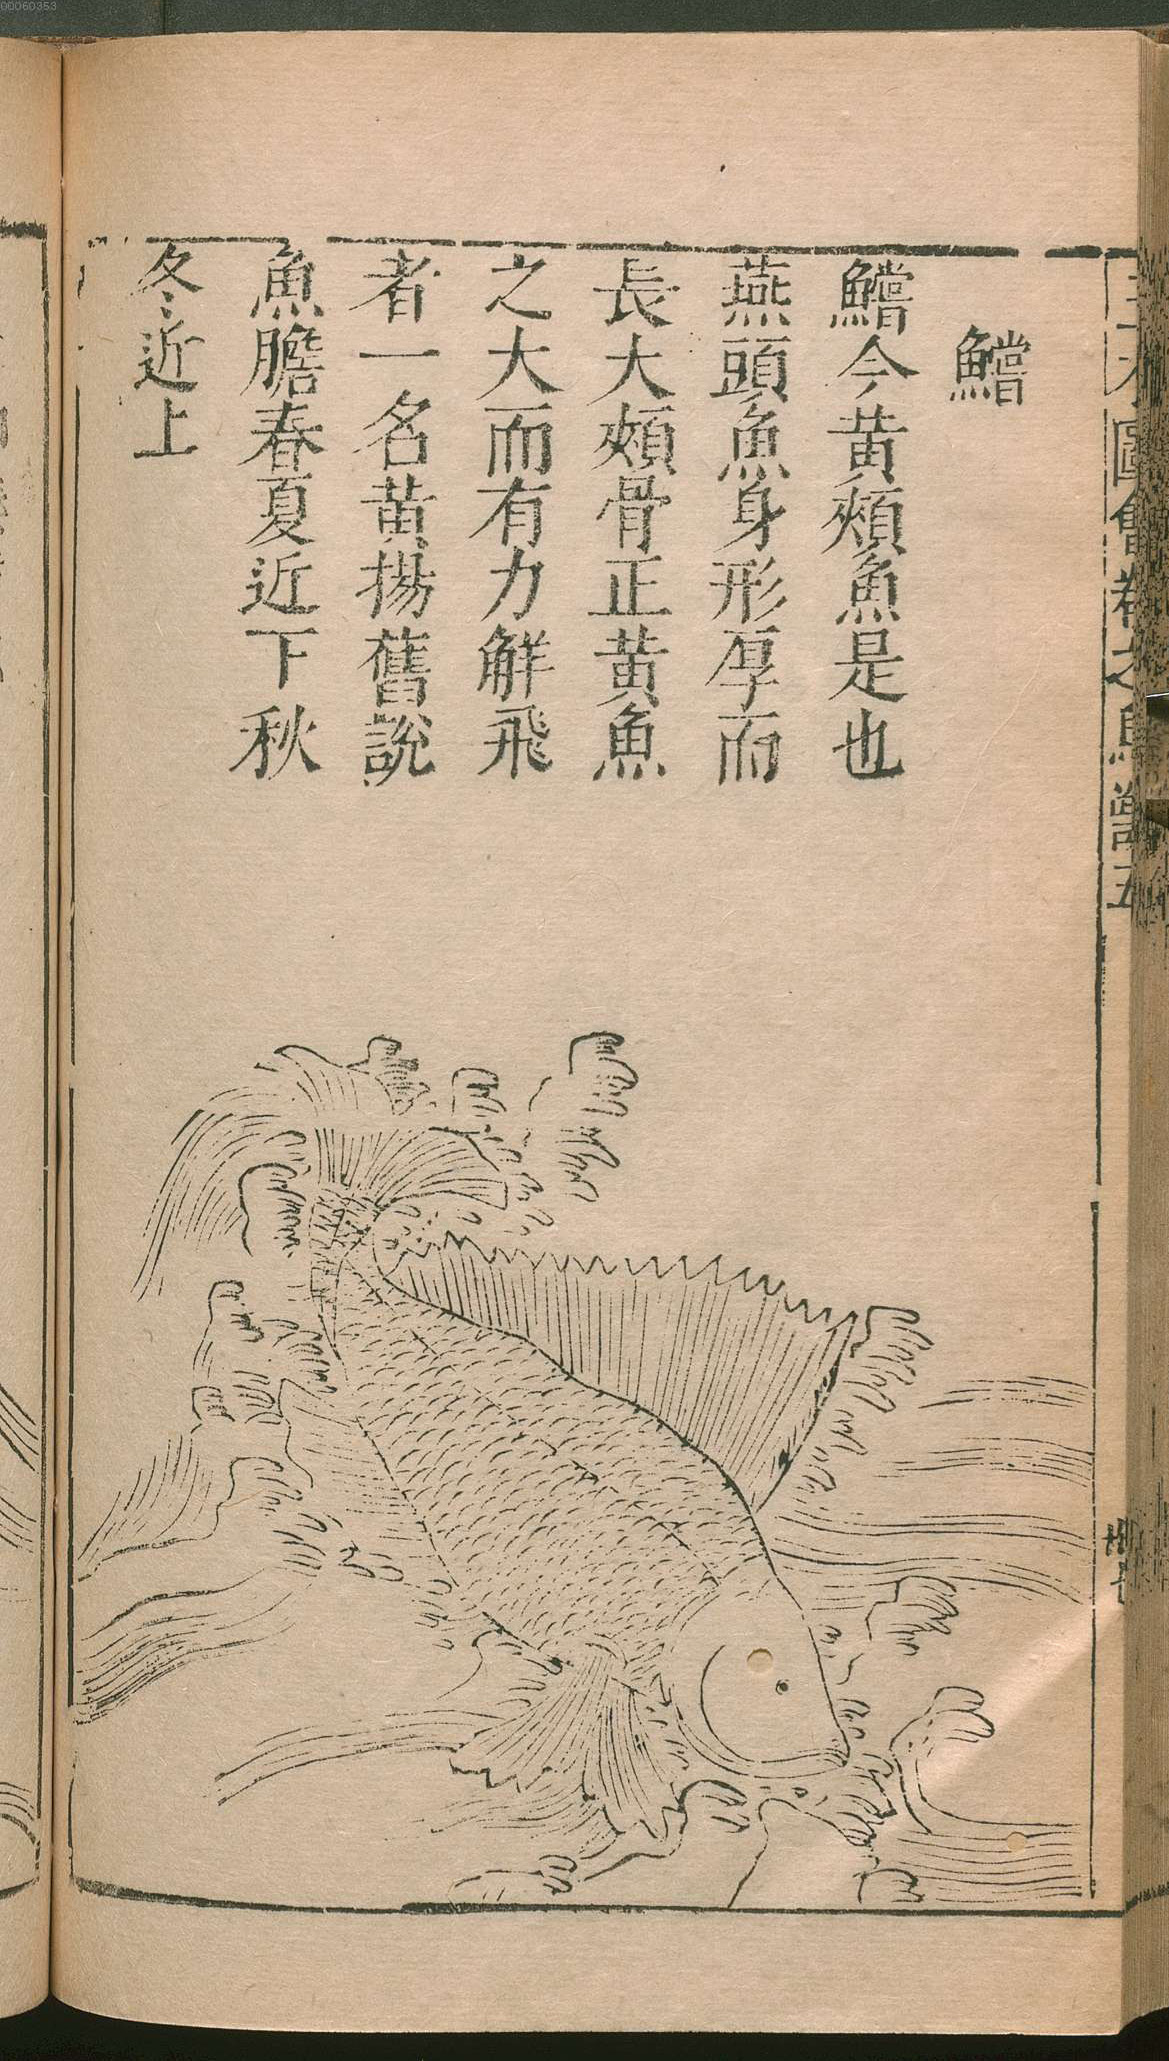 00060353
鱨
鱨今黄頰魚是也
燕頭魚身形厚而
長大頰骨正黄魚
之大而有力解飛
者一名黄揚舊說
魚膽春夏近下秋
冬近上
圖會卷之鳥獸五